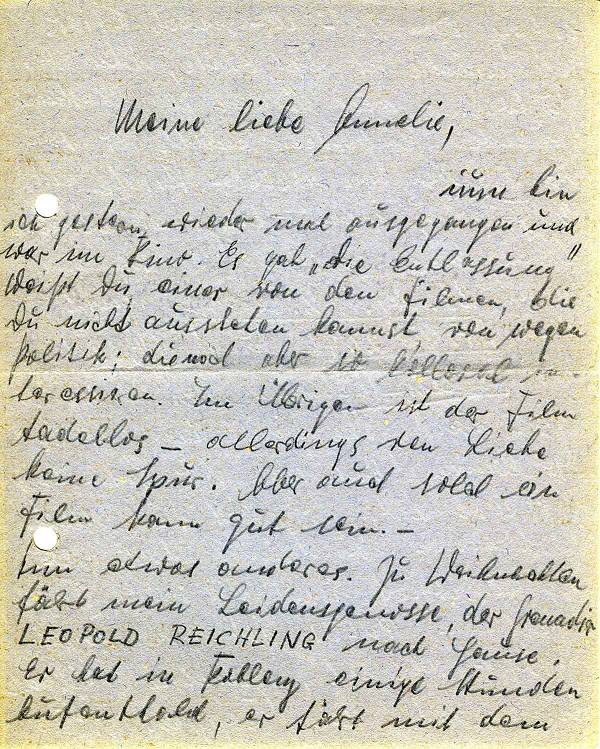 Meine liebe Annelie,
nun bin
ich gestern wieder mal ausgegangen und
war im Kino. Es gab „Die Entlassung"
weißt Du, einer von den Filmen, die
Du nicht ausstehen kannst, von wegen
Politik; die mich aber so kollossal in-
teressieren. Im Übrigen ist der Film
tadellos – allerdings von Liebe
keine Spur. Aber auch solch ein
Film kann gut sein. –
Nun etwas anderes. Zu Weihnachten
fährt mein Leidensgenosse, der Grenadier
LEOPOLD REICHLING nach Hause.
Er hat in Koblenz einige Stunden
Aufenthald, er fährt mit dem